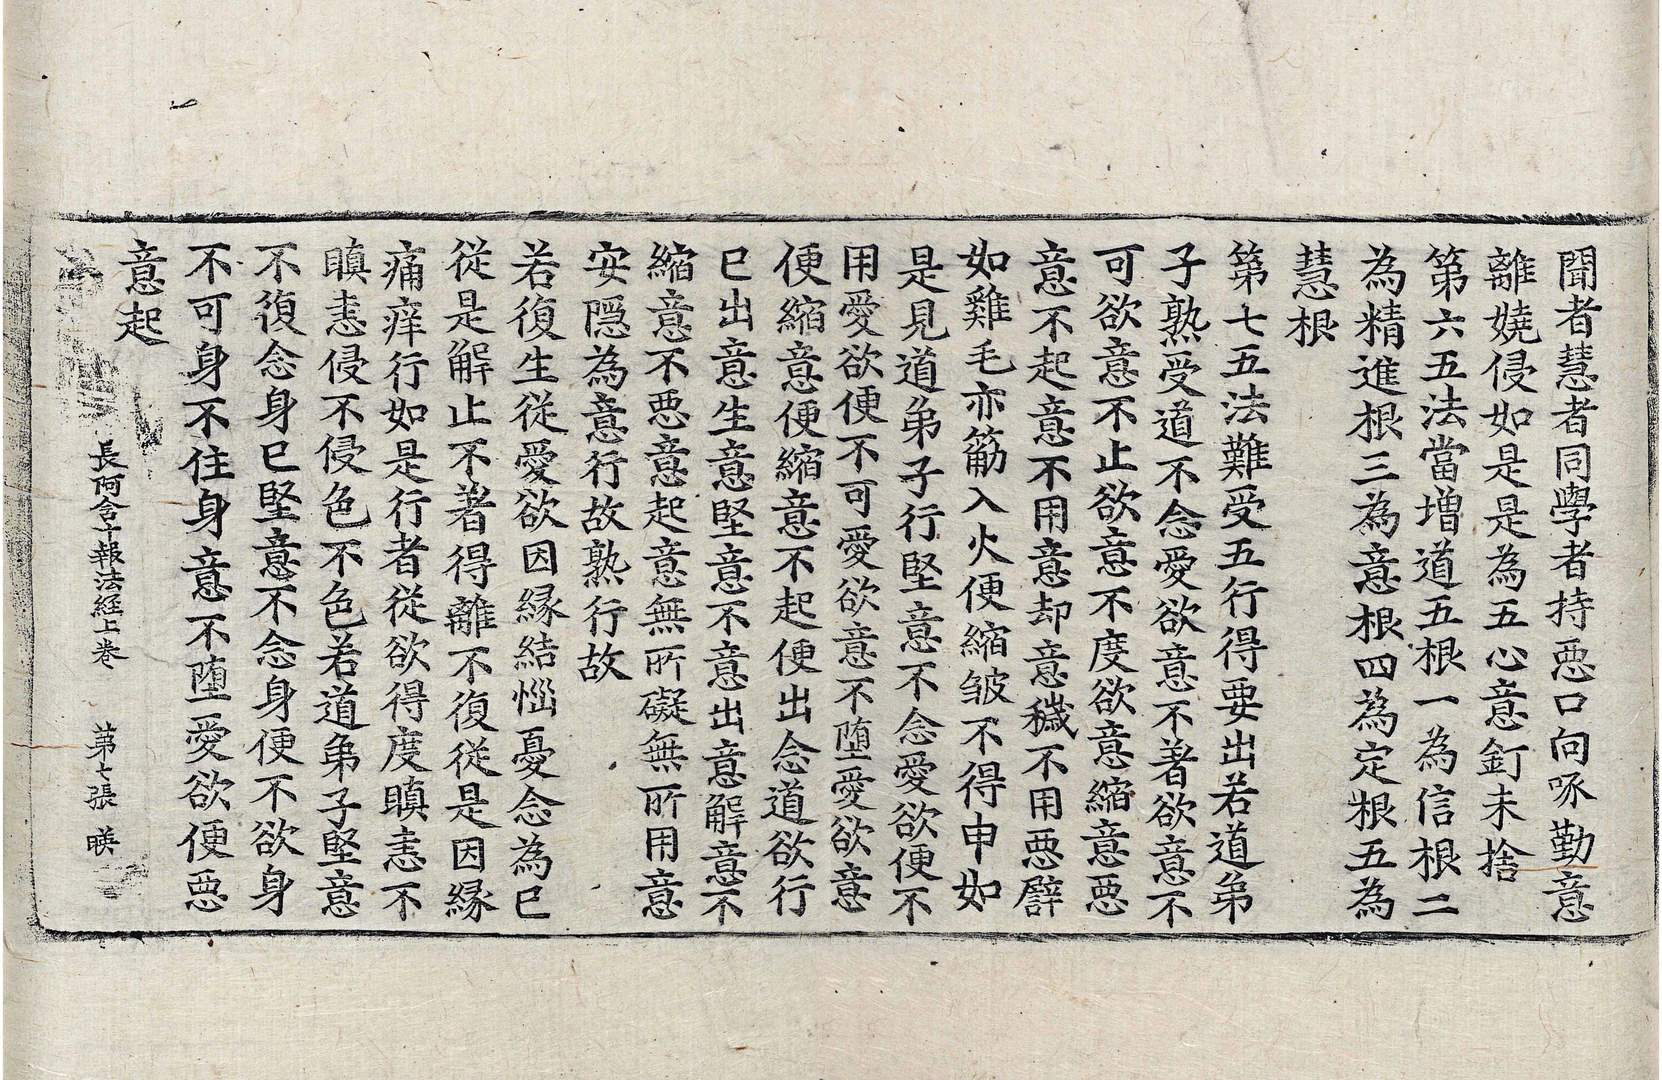 聞者慧者同學者持惡口向啄勤意
離嬈侵如是是為五心意釘未捨
第六五法當増道五根一為信根二
為精進根三為意根四為定根五為
慧根
第七五法難受五行得要出若道弟
子熟受道不念愛欲意不著欲意不
可欲意不止欲意不度欲意縮意惡
意不起意不用意却意穢不用惡譬
如雞毛亦筋入火便縮皺不得申如
是見道弟子行堅意不念愛欲便不
用愛欲便不可愛欲意不堕愛欲意
便縮意便縮意不起便出念道欲行
已出意生意堅意不意出意解意不
縮意不惡意起意無所礙無所用意
安隠為意行故熟行故
若復生從愛欲因縁結惱憂念為已
從是解止不著得離不復從是因縁
痛痒行如是行者從欲得度瞋恚不
瞋恚侵不侵色不色若道弟子堅意
不復念身已堅意不念身便不欲身
不可身不住身意不堕愛欲便惡
意起
長阿含十報法經上卷 第七張 暎